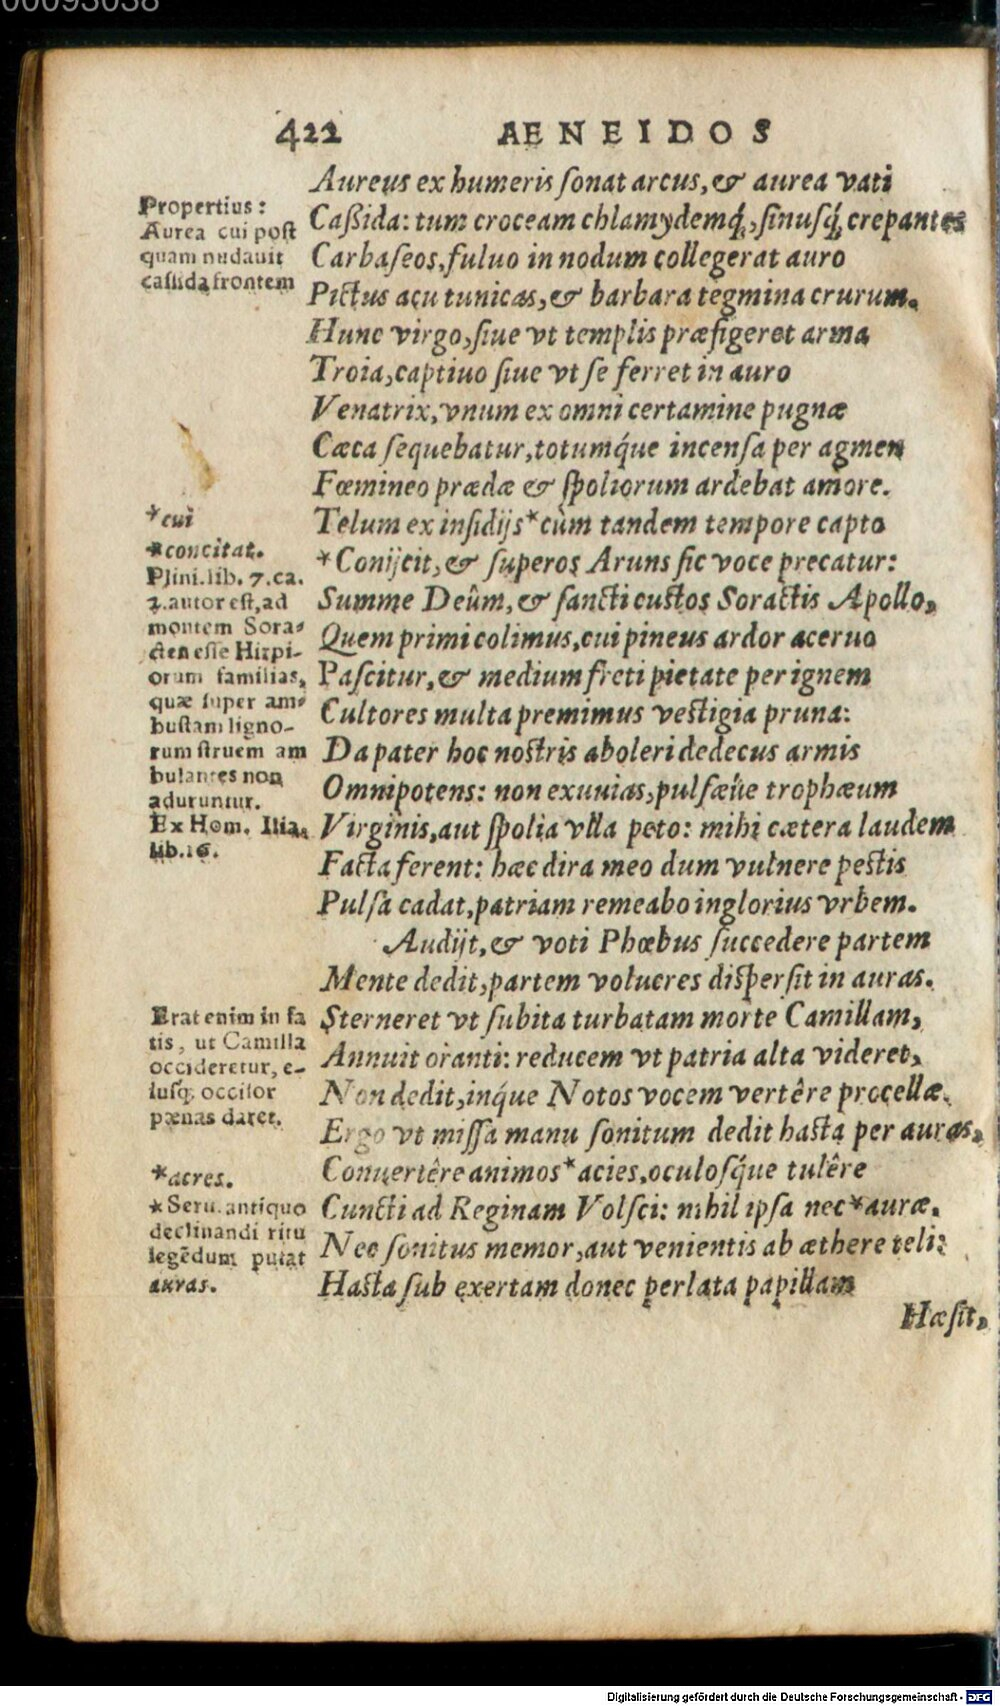 00093038
422 AENEIDOS
Aureus ex humeris ſonat arcus, & aurea vati
Caßida: tum croceam chlamydemq́;, ſinuſq́; crepantes
Carbaſeos, fuluo in nodum collegerat auro
Pictus acu tunicas, & barbara tegmina crurum.
Hunc virgo, ſiue vt templis præfigeret arma
Troia, captiuo ſiue vt ſe ferret in auro
Venatrix, vnum ex omni certamine pugnæ
Cæca ſequebatur, totumq́ue incenſa per agmen
Fœmineo prædæ & ſpoliorum ardebat amore.
Telum ex inſidijs *cùm tandem tempore capto
*Conijcit, & ſuperos Aruns ſic voce precatur:
Summe Deûm, & ſancti cuſtos Soractis Apollo,
Quem primi colimus, cui pineus ardor aceruo
Paſcitur, & medium freti pietate per ignem
Cultores multa premimus veſtigia pruna:
Da pater hoc noſtris aboleri dedecus armis
Omnipotens: non exuuias, pulſæűe trophæum
Virginis, aut ſpolia vlla peto: mihi cætera laudem
Facta ferent: hæc dira meo dum vulnere peſtis
Pulſa cadat, patriam remeabo inglorius vrbem.
Audijt, & voti Phœbus ſuccedere partem
Mente dedit, partem volucres diſperſit in auras.
Sterneret vt ſubita turbatam morte Camillam,
Annuit oranti: reducem vt patria alta videret,
Non dedit, inq́ue Notos vocem vertêre procellæ.
Ergo vt miſſa manu ſonitum dedit haſta per auras,
Conuertêre animos *acies, oculoſq́ue tulêre
Cuncti ad Reginam Volſci: nihil ipſa nec *auræ,
Nec ſonitus memor, aut venientis ab æthere teli:
Haſta ſub exertam donec perlata papillam
Hæſit,
Propertius:
Aurea cui poſt
quam nudauit
caſſida frontem
*cui
*concitat.
Plini. lib. 7. ca.
2. autor eſt, ad
montem Sora-
cten eſſe Hirpi-
orum familias,
quæ ſuper am-
buſtam ligno-
rum ſtruem am
bulantes non
aduruntur.
Ex Hom. Ilia.
lib. 16.
Erat enim in fa
tis, ut Camilla
occideretur, e-
iuſq; occiſor
pœnas daret.
*acres.
*Seru. antiquo
declinandi ritu
legẽdum putat
auras.
Digitalisierung gefördert durch die Deutsche Forschungsgemeinschaft - DFG